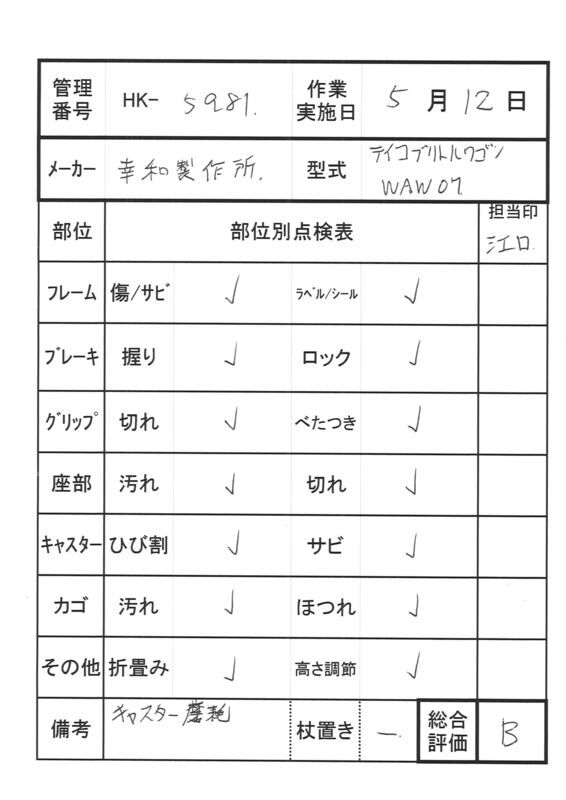 管理番号 HK- 5981. 作業実施日 5月12日
メーカー 幸和製作所. 型式 テイコブリトルワゴン WAW07
部位 部位別点検表 担当印 江口
フレーム 傷/サビ ✓ ラベル/シール ✓
ブレーキ 握り ✓ ロック ✓
グリップ 切れ ✓ べたつき ✓
座部 汚れ ✓ 切れ ✓
キャスター ひび割 ✓ サビ ✓
カゴ 汚れ ✓ ほつれ ✓
その他 折畳み ✓ 高さ調節 ✓
備考 キャスター磨耗 杖置き ー. 総合評価 B